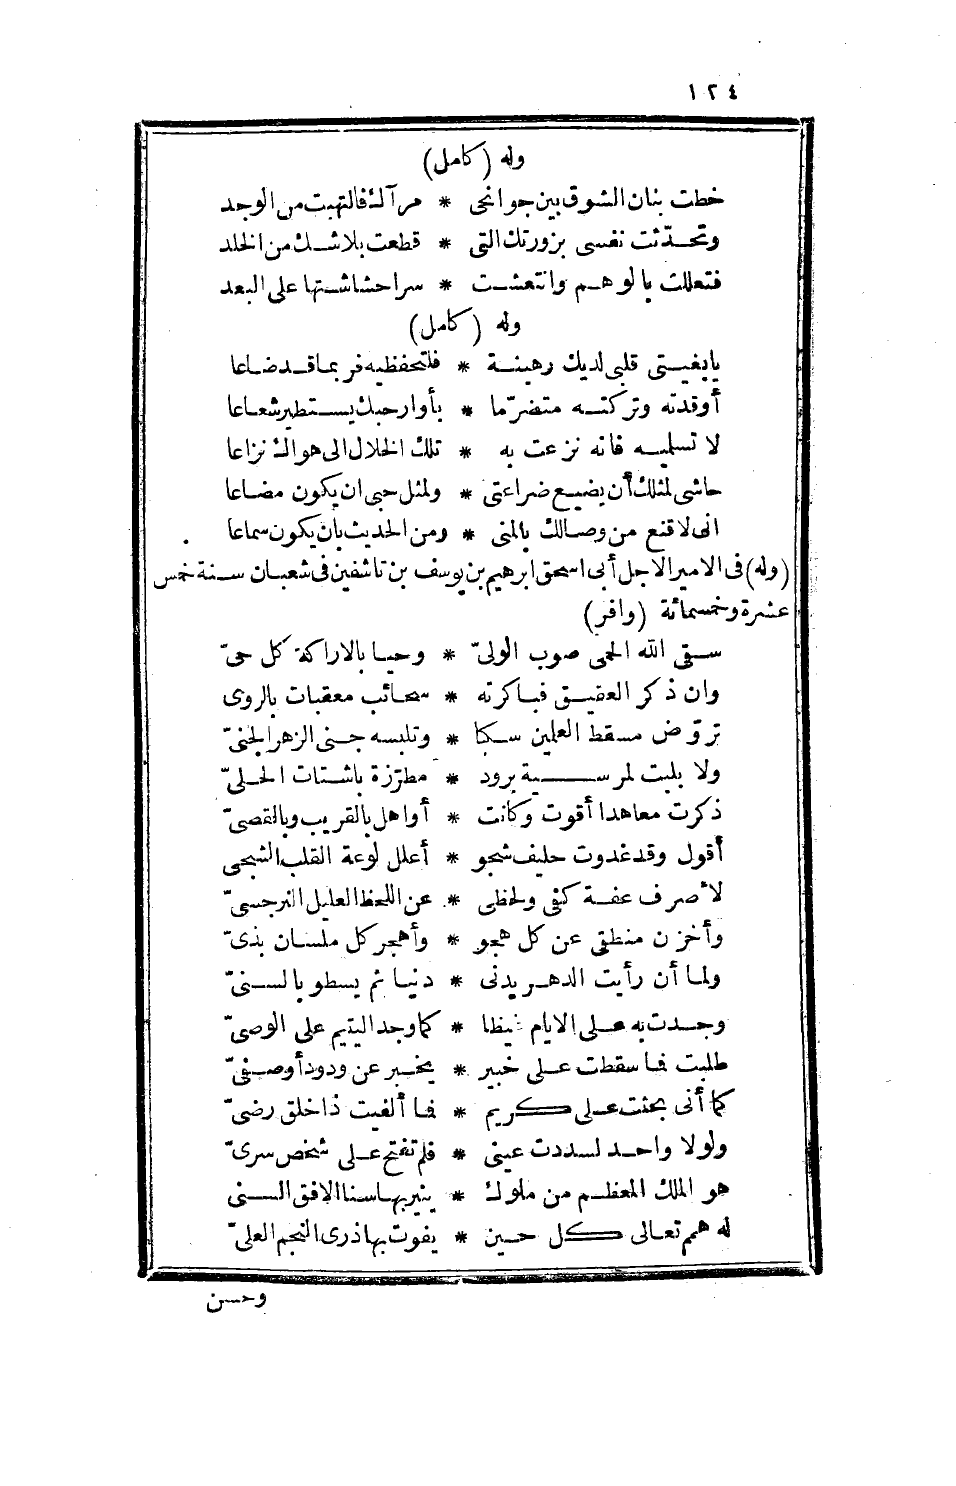 ١٢٤
وله (كامل)
خطت بنان الشوق بين جوانحى * مرآك فالتهبت من الوجد
وتحدّثت نفسى بزورتك التى * قطعت بلاشك من الخلد
فتعللت بالوهم وانتعشت * سرا حشاشتها على البعد
وله (كامل)
يابغيتى قلبى لديك رهينة * فلتحفظيه فربما قد ضاعا
أوقدته وتركته متضرّما * بأوار حبك يستطير شعاعا
لا تسلميه فانه نزعت به * تلك الخلال الى هواك نزاعا
حاشى لمثلك أن يضيع ضراعتى * ولمثل حبى ان يكون مضاعا
انى لاقنع من وصالك بالمنى * ومن الحديث بأن يكون سماعا
(وله) فى الامير الاجل أبى اسحق ابرهيم بن يوسف بن تاشفين فى شعبان سنة خمس
عشرة وخمسمائة (وافر)
سقى الله الحمى صوب الولىّ * وحيا بالاراكة كل حىّ
وان ذكر العقيق فباكرته * سحائب معقبات بالروى
تروّض مسقط العلمين سكبا * وتلبسه جنى الزهر الجنىّ
ولا بليت لمرسية برود * مطرّزة باشتات الحلىّ
ذكرت معاهدا أقوت وكانت * أواهل بالقريب وبالقصىّ
أقول وقد غدوت حليف شجو * أعلل لوعة القلب الشجى
لأصرف عفة كفى ولحظى * عن اللحظ العليل النرجسىّ
وأخزن منطقى عن كل هجو * وأهجر كل ملسان بذىّ
ولما أن رأيت الدهر يدنى * دنيا ثم يسطو بالسنىّ
وجدت به على الايام غيظا * كما وجد اليتيم على الوصىّ
طلبت فما سقطت على خبير * يخبر عن ودود أو صفىّ
كما أنى بحثت على كريم * فما ألفيت ذا خلق رضىّ
ولولا واحد لسددت عينى * فلم تفتح على شخص سرىّ
هو الملك المعظم من ملوك * ينير بها سنا الافق السنى
له همم تعالى كل حين * يفوت بها ذرى النجم العلىّ
وحسن